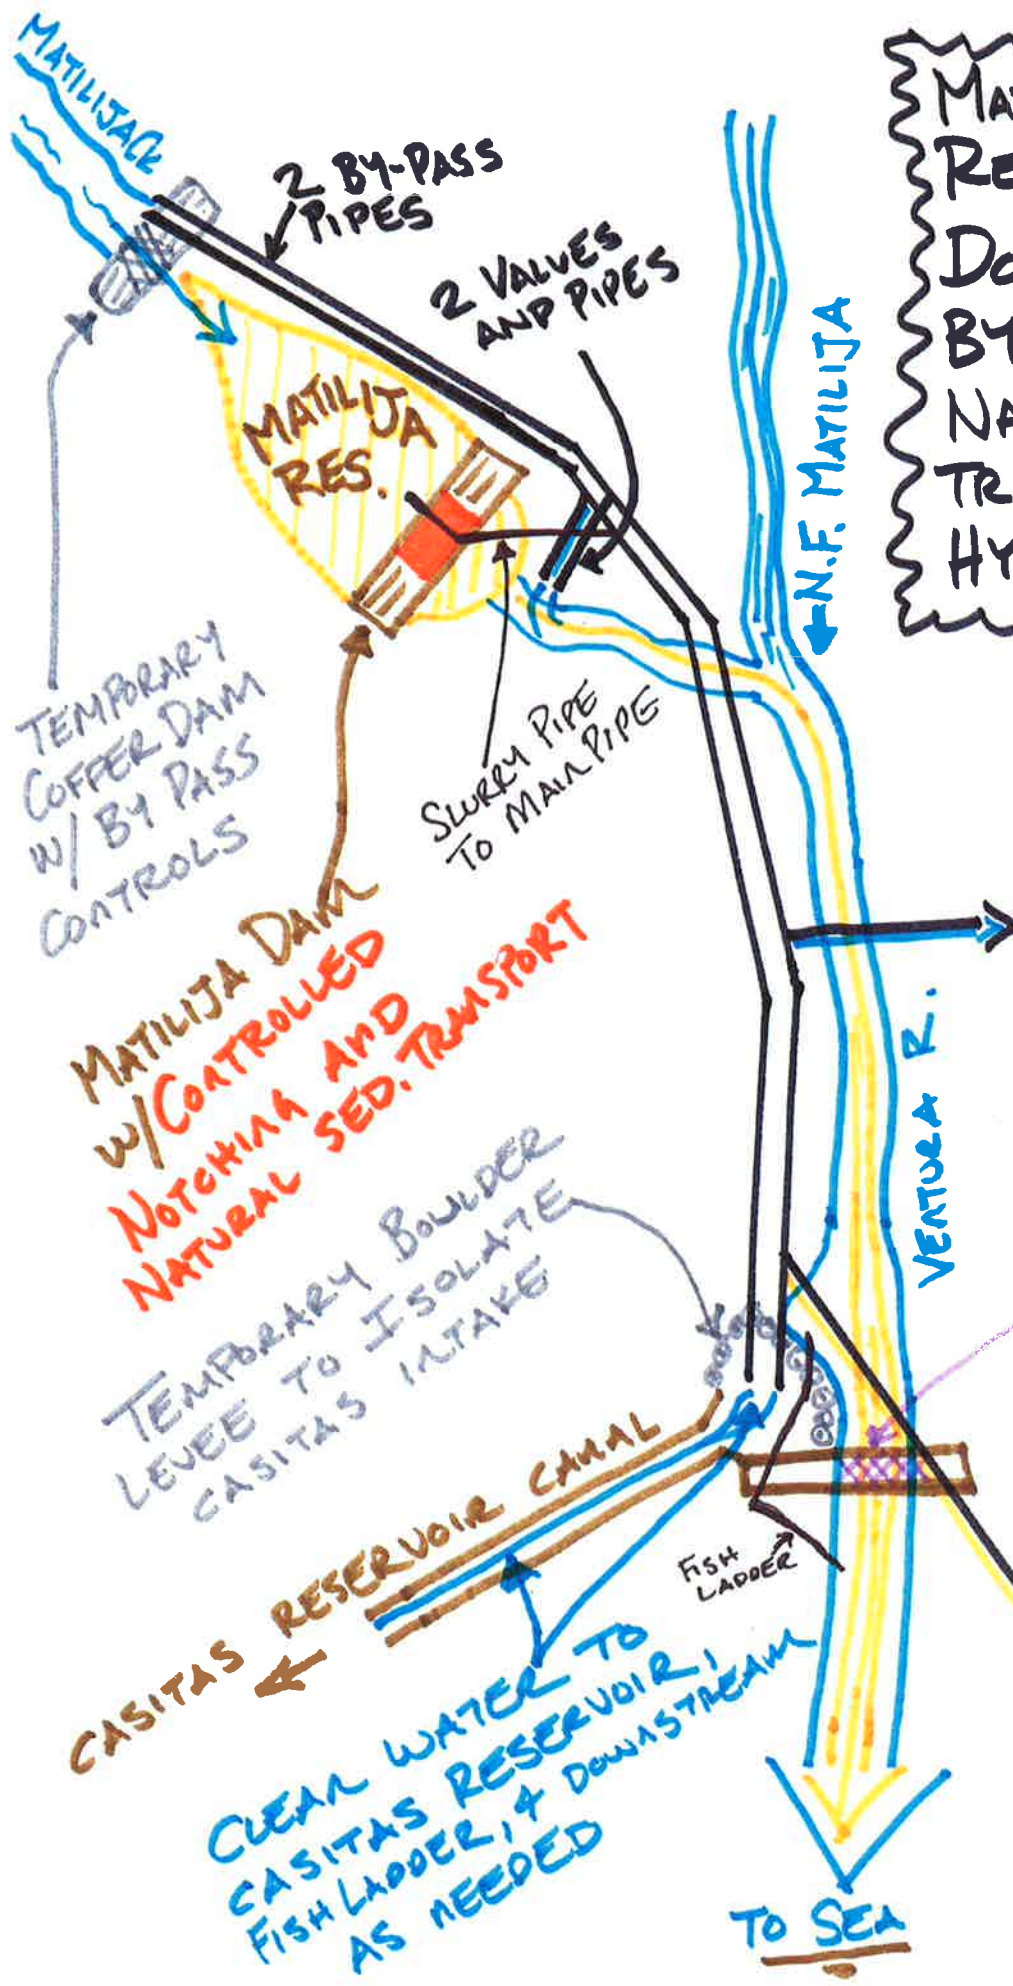 MATILIJA CK
2 BY-PASS
PIPES
2 VALVES
AND PIPES
MA
RE
DO
BY
NA
TR
HY
N.F. MATILIJA
MATILIJA
RES.
TEMPORARY
COFFER DAM
W/ BY PASS
CONTROLS
SLURRY PIPE
TO MAIN PIPE
MATILIJA DAM
W/ CONTROLLED
NOTCHING AND
NATURAL SED. TRANSPORT
VENTURA R.
TEMPORARY BOULDER
LEVEE TO ISOLATE
CASITAS INTAKE
CASITAS RESERVOIR CANAL
FISH
LADDER
CLEAR WATER TO
CASITAS RESERVOIR,
FISH LADDER, & DOWNSTREAM
AS NEEDED
TO SEA